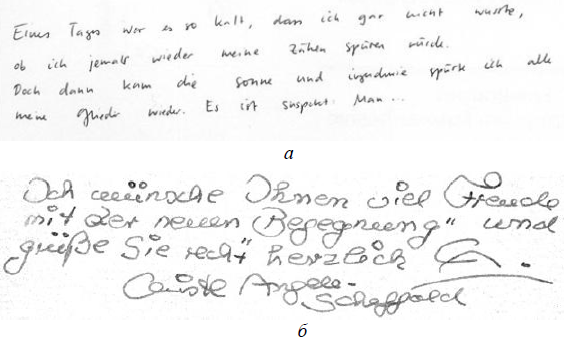 Eines Tages war es so kalt, dass ich gar nicht wusste,
ob ich jemals wieder meine Zähen spüren würde.
Doch dann kam die Sonne und irgendwie spürte ich alle
meine Glieder wieder. Es ist suspekt. Man...
а
Ich wünsche Ihnen viel Freude
mit der neuen "Begegnung" und
grüße Sie recht herzlich
Angele-
б